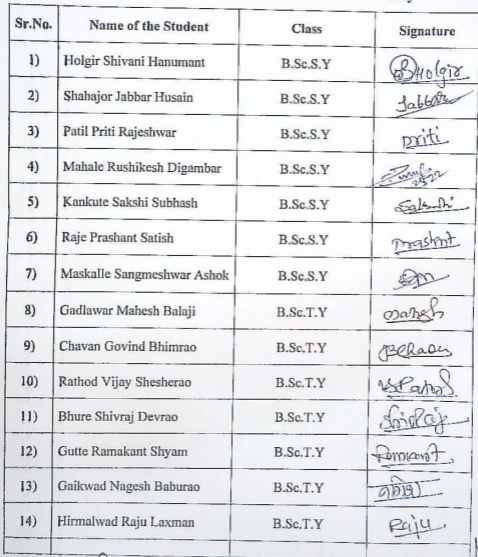 Sr.No. Name of the Student Class Signature
1) Holgir Shivani Hanumant B.Sc.S.Y SHolgir
2) Shahajor Jabbar Husain B.Sc.S.Y Jabbar
3) Patil Priti Rajeshwar B.Sc.S.Y Priti
4) Mahale Rushikesh Digambar B.Sc.S.Y
5) Kankute Sakshi Subhash B.Sc.S.Y Sakshi
6) Raje Prashant Satish B.Sc.S.Y Prashant
7) Maskalle Sangmeshwar Ashok B.Sc.S.Y
8) Gadlawar Mahesh Balaji B.Sc.T.Y Mahesh
9) Chavan Govind Bhimrao B.Sc.T.Y
10) Rathod Vijay Shesherao B.Sc.T.Y
11) Bhure Shivraj Devrao B.Sc.T.Y Shivraj
12) Gutte Ramakant Shyam B.Sc.T.Y
13) Gaikwad Nagesh Baburao B.Sc.T.Y
14) Hirmalwad Raju Laxman B.Sc.T.Y Raju